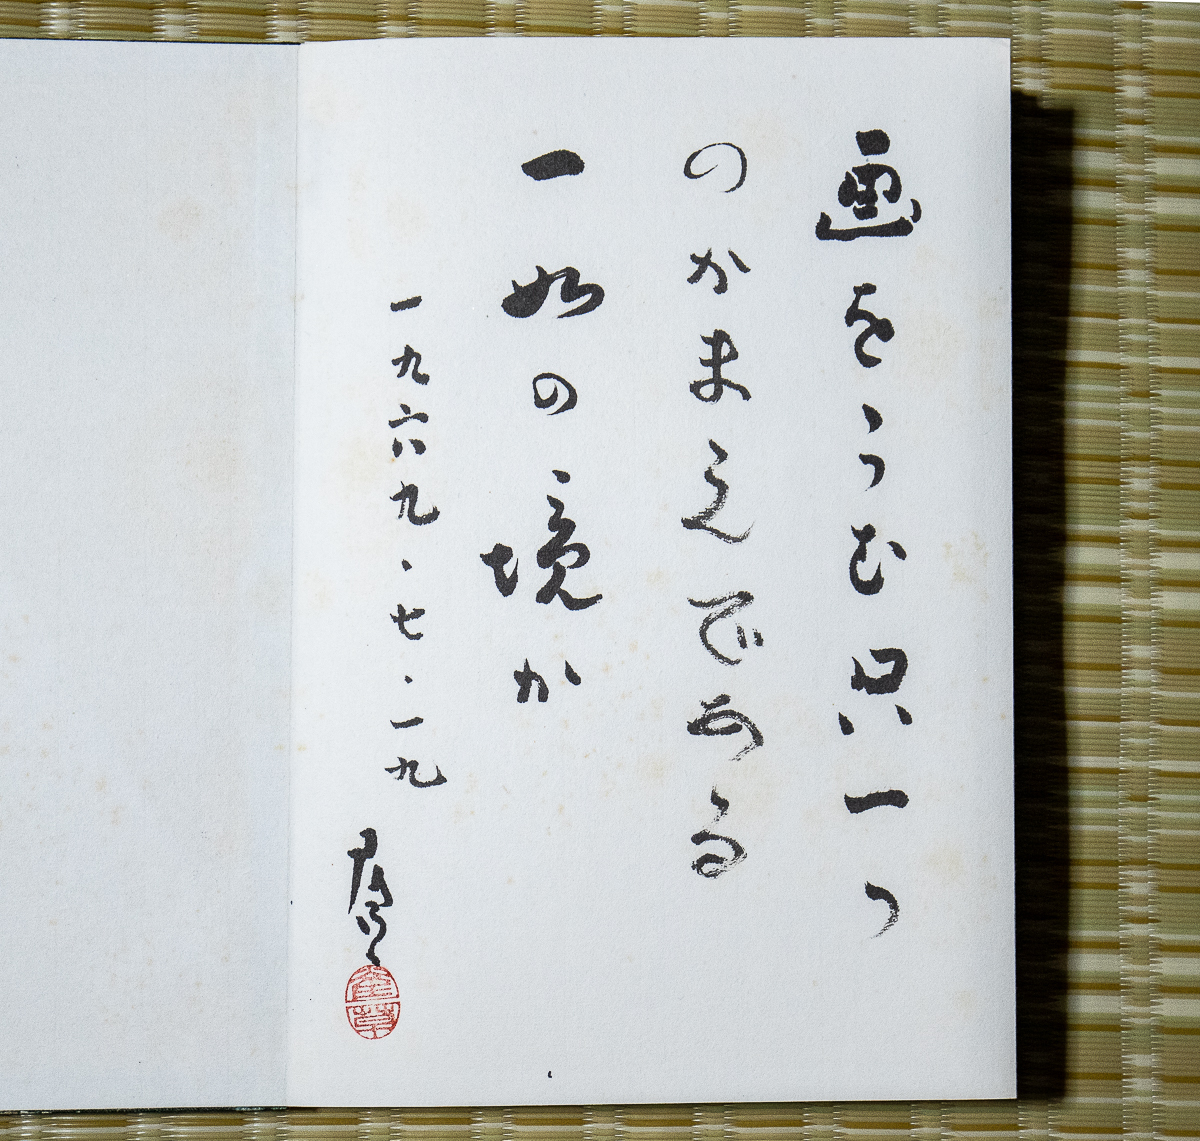 画をうむ只一つ
のかまえである
一如の境か
一九六九・七・一九